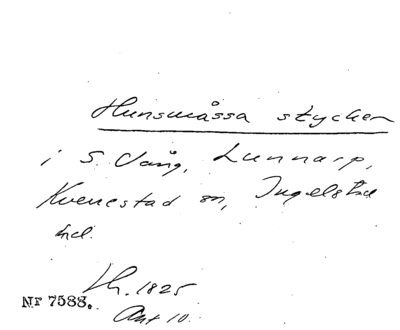 Hunsmåssa stycken
i S. Vång, Lunnarp,
Kverrestad sn, Ingelstad
hd.
Lh. 1825
Ant 10.
Nr 7588.